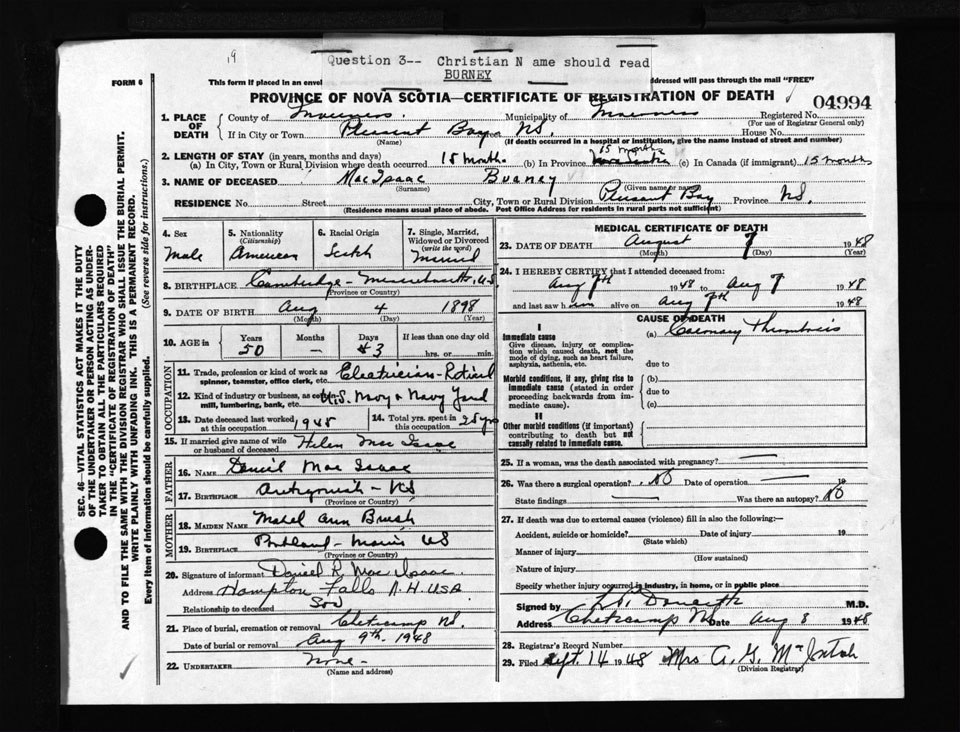 19
Question 3-- Christian N ame should read
BURNEY
FORM 6
This form if placed in an envel ddressed will pass through the mail "FREE"
PROVINCE OF NOVA SCOTIA—CERTIFICATE OF REGISTRATION OF DEATH
04994
1. PLACE OF DEATH
County of Inverness. Municipality of Inverness Registered No.
(For use of Registrar General only)
If in City or Town Plesent Bay NS. House No.
(Name) (If death occurred in a hospital or institution, give the name instead of street and number)
2. LENGTH OF STAY (in years, months and days)
(a) In City, Town or Rural Division where death occurred 15 months. (b) In Province 15 months (c) In Canada (if immigrant) 15 months
3. NAME OF DECEASED MacIsaac Burney
(Surname) (Given name or names)
RESIDENCE No. Street City, Town or Rural Division Plesant Bay Province NS.
(Residence means usual place of abode. Post Office Address for residents in rural parts not sufficient)
4. Sex
Male
5. Nationality
(Citizenship)
American
6. Racial Origin
Scotch
7. Single, Married, Widowed or Divorced
(write the word)
Married
8. BIRTHPLACE Cambridge - Massachusetts, US
(Province or Country)
9. DATE OF BIRTH Aug 4 1898
(Month) (Day) (Year)
10. AGE in Years Months Days If less than one day old
50 — 3 hrs. or min.
OCCUPATION
11. Trade, profession or kind of work as
spinner, teamster, office clerk, etc. Electrician-Retired
12. Kind of industry or business, as cotton-
mill, lumbering, bank, etc. U.S. Navy Yard
13. Date deceased last worked
at this occupation 1945
14. Total yrs. spent in
this occupation 25 yrs
15. If married give name of wife
or husband of deceased Helen Mac Isaac
FATHER
16. NAME Daniel Mac Isaac
17. BIRTHPLACE Antigonish - NS
(Province or Country)
MOTHER
18. MAIDEN NAME Mabel Ann
19. BIRTHPLACE Portland - Maine US
(Province or Country)
20. Signature of informant Daniel R. Mac Isaac
Address Hampton Falls N.H. USA
Relationship to deceased Son
21. Place of burial, cremation or removal Cheticamp NS.
Date of burial or removal Aug 9th. 1948
22. UNDERTAKER None -
(Name and address)
MEDICAL CERTIFICATE OF DEATH
23. DATE OF DEATH August 7 1948
(Month) (Day) (Year)
24. I HEREBY CERTIFY that I attended deceased from:
Aug 7th 1948 to Aug 7 1948
and last saw him alive on Aug 7th 1948
CAUSE OF DEATH
I
Immediate cause
Give disease, injury or complica-
tion which caused death, not the
mode of dying, such as heart failure,
asphyxia, asthenia, etc.
(a) Coronary Thrombosis
due to
Morbid conditions, if any, giving rise to
immediate cause (stated in order
proceeding backwards from im-
mediate cause).
(b)
due to
(c)
II
Other morbid conditions (if important)
contributing to death but not
causally related to immediate cause.
25. If a woman, was the death associated with pregnancy? —
26. Was there a surgical operation? No Date of operation — 19
State findings — Was there an autopsy? No
27. If death was due to external causes (violence) fill in also the following:—
Accident, suicide or homicide? Date of injury 19
(State which)
Manner of injury
(How sustained)
Nature of injury
Specify whether injury occurred in industry, in home, or in public place
Signed by M.D.
Address Cheticamp NS Date Aug 8 1948
28. Registrar's Record Number
29. Filed Sept. 14 1948 Mrs A. G. McIntosh
(Division Registrar)
SEC. 46—VITAL STATISTICS ACT MAKES IT THE DUTY
OF THE UNDERTAKER OR PERSON ACTING AS UNDER-
TAKER TO OBTAIN ALL THE PARTICULARS REQUIRED
IN THE "CERTIFICATE OF REGISTRATION OF DEATH"
AND TO FILE THE SAME WITH THE DIVISION REGISTRAR WHO SHALL ISSUE THE BURIAL PERMIT.
WRITE PLAINLY WITH UNFADING INK. THIS IS A PERMANENT RECORD.
Every item of information should be carefully supplied. (See reverse side for instructions.)